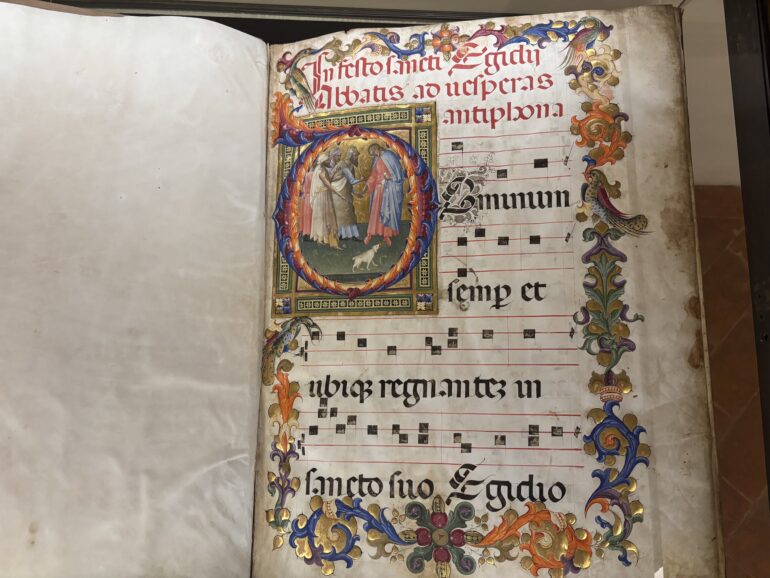 In festo sancti Egidij
Abbatis ad uesperas
antiphona
DOminum
semp et
ubiqꝫ regnantez in
sancto suo Egidio